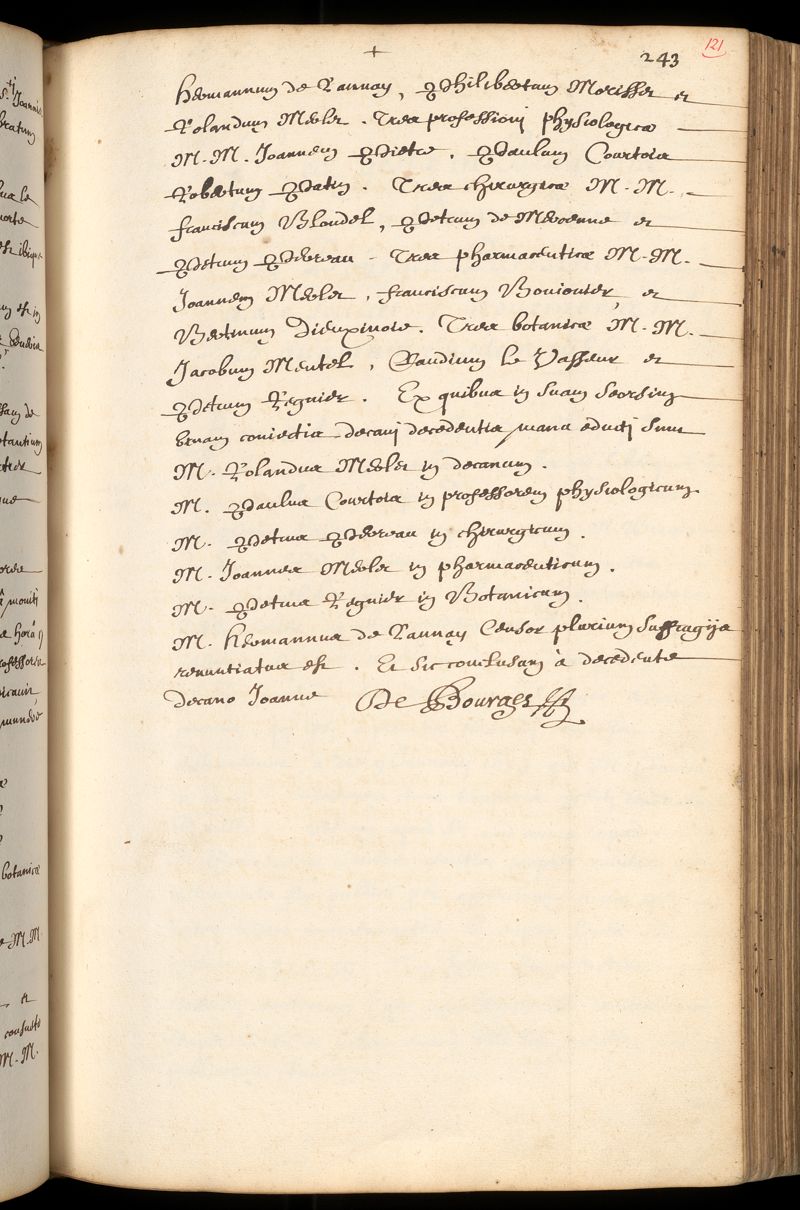 +
243
121
hermannum de Lannay, Philibertum Morisset et
Rolandum Merlet. Tres professioni physiologicæ
M. M. Joannem Pietre, Paulum Courtois
Robertum Patin. Tres chirurgicæ M. M.
franciscum Blondel, Petrum de Mercenne et
Petrum Perreau. Tres pharmaceuticæ M. M.
Joannem Merlet, franciscum Boujonier, et
Bertinum Dieuxivoie. Tres botanicæ M. M.
Jacobum Mentel, Claudium le Vasseur et
Petrum Regnier. Ex quibus in suam seorsim
urnam coniectis decani decedentis manu educti sunt
M. Rolandus Merlet in decanum.
M. Paulus Courtois in professorem physiologicum
M. Petrus Perreau in chirurgicum.
M. Joannes Merlet in pharmaceuticum.
M. Petrus Regnier in Botanicum.
M. hermannus de Lannay Censor plurium suffragijs
renuntiatus est. Et sic conclusum à decedente
Decano Joanne De Bourges